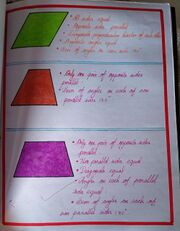 • All sides equal
• Opposite sides parallel
• Diagonals perpendicular bisector of each other
• Opposite angles equal
• Sum of angles on one side 180°
• Only one pair of opposite sides
parallel
• Sum of angles on each of non
parallel sides 180°
• Only one pair of opposite sides
parallel
• Non parallel sides equal
• Diagonals equal
• Angles on each of parallel
side equal
• Sum of angles on each of
non parallel sides 180°